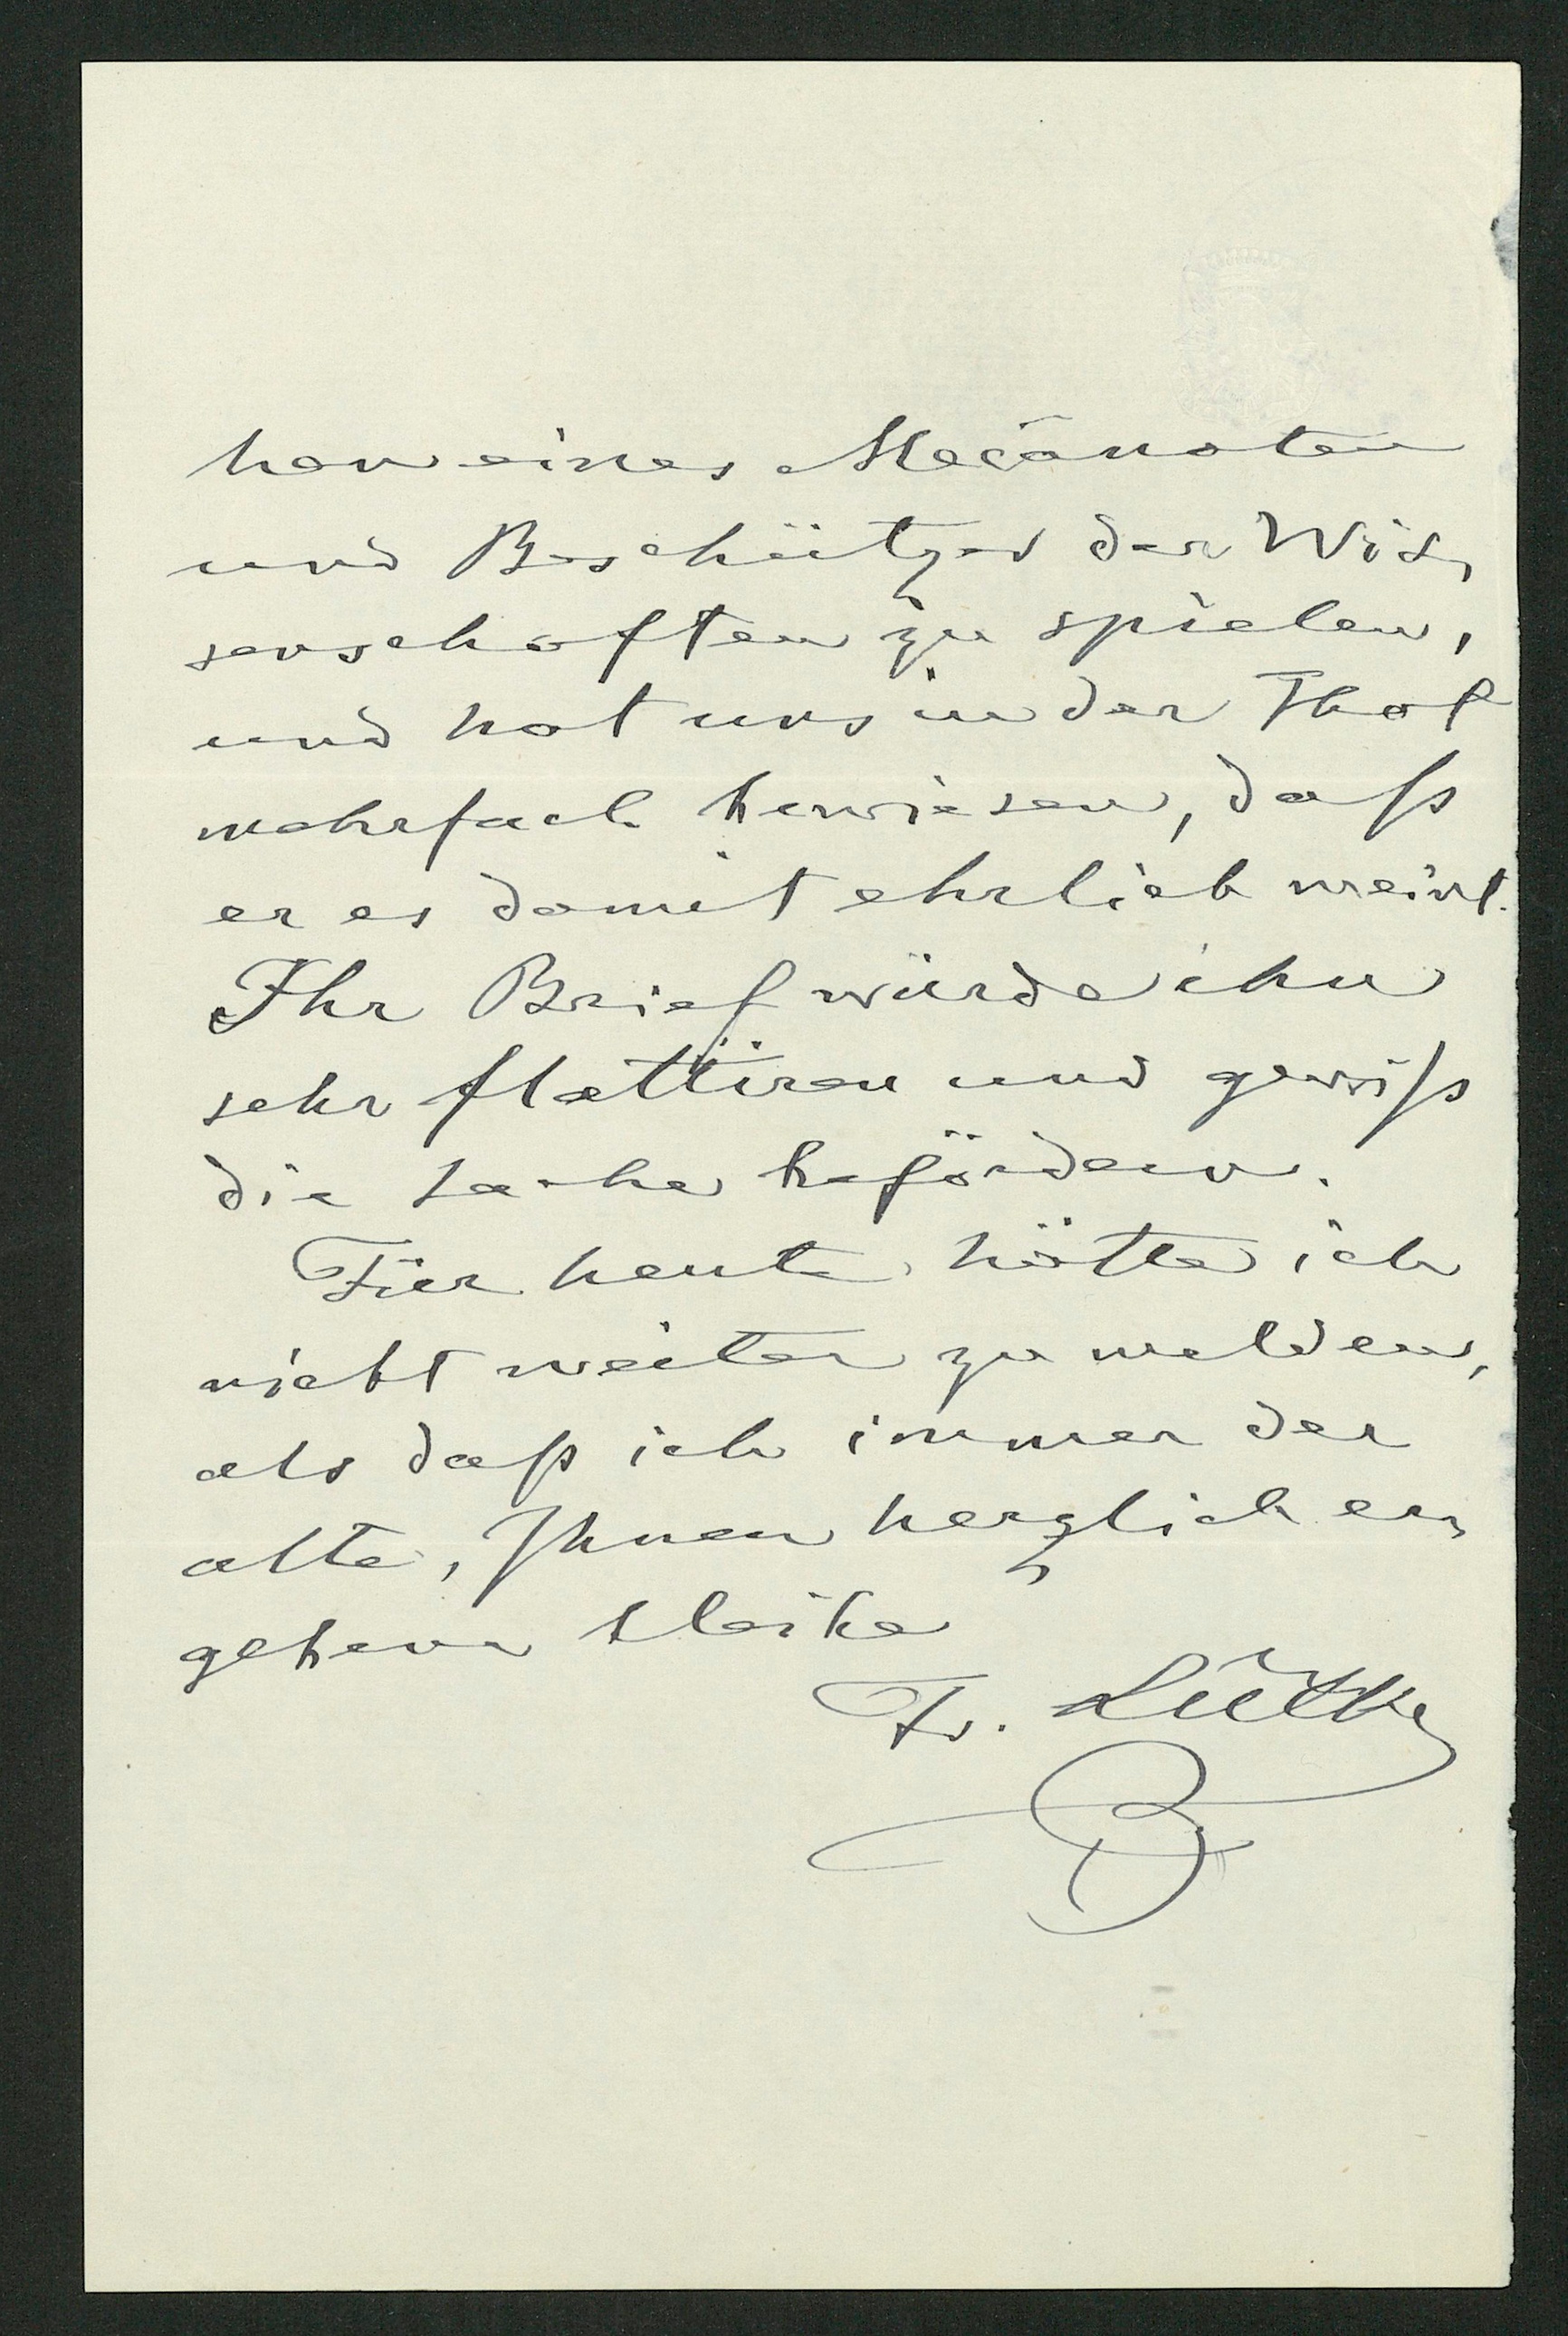 hen eines Mecänaten
und Beschützer der Wis-
senschaften zu spielen,
und hat uns in der That
mehrfach bewiesen, daß
er es damit ehrlich meint.
Ihr Brief würde ihn
sehr flattiren und gewiß
die Sache befördern.
Für heute hätte ich
nicht weiter zu melden,
als daß ich immer der
alte, Ihnen herzlich er-
gebene bleibe
Fr. Lütke